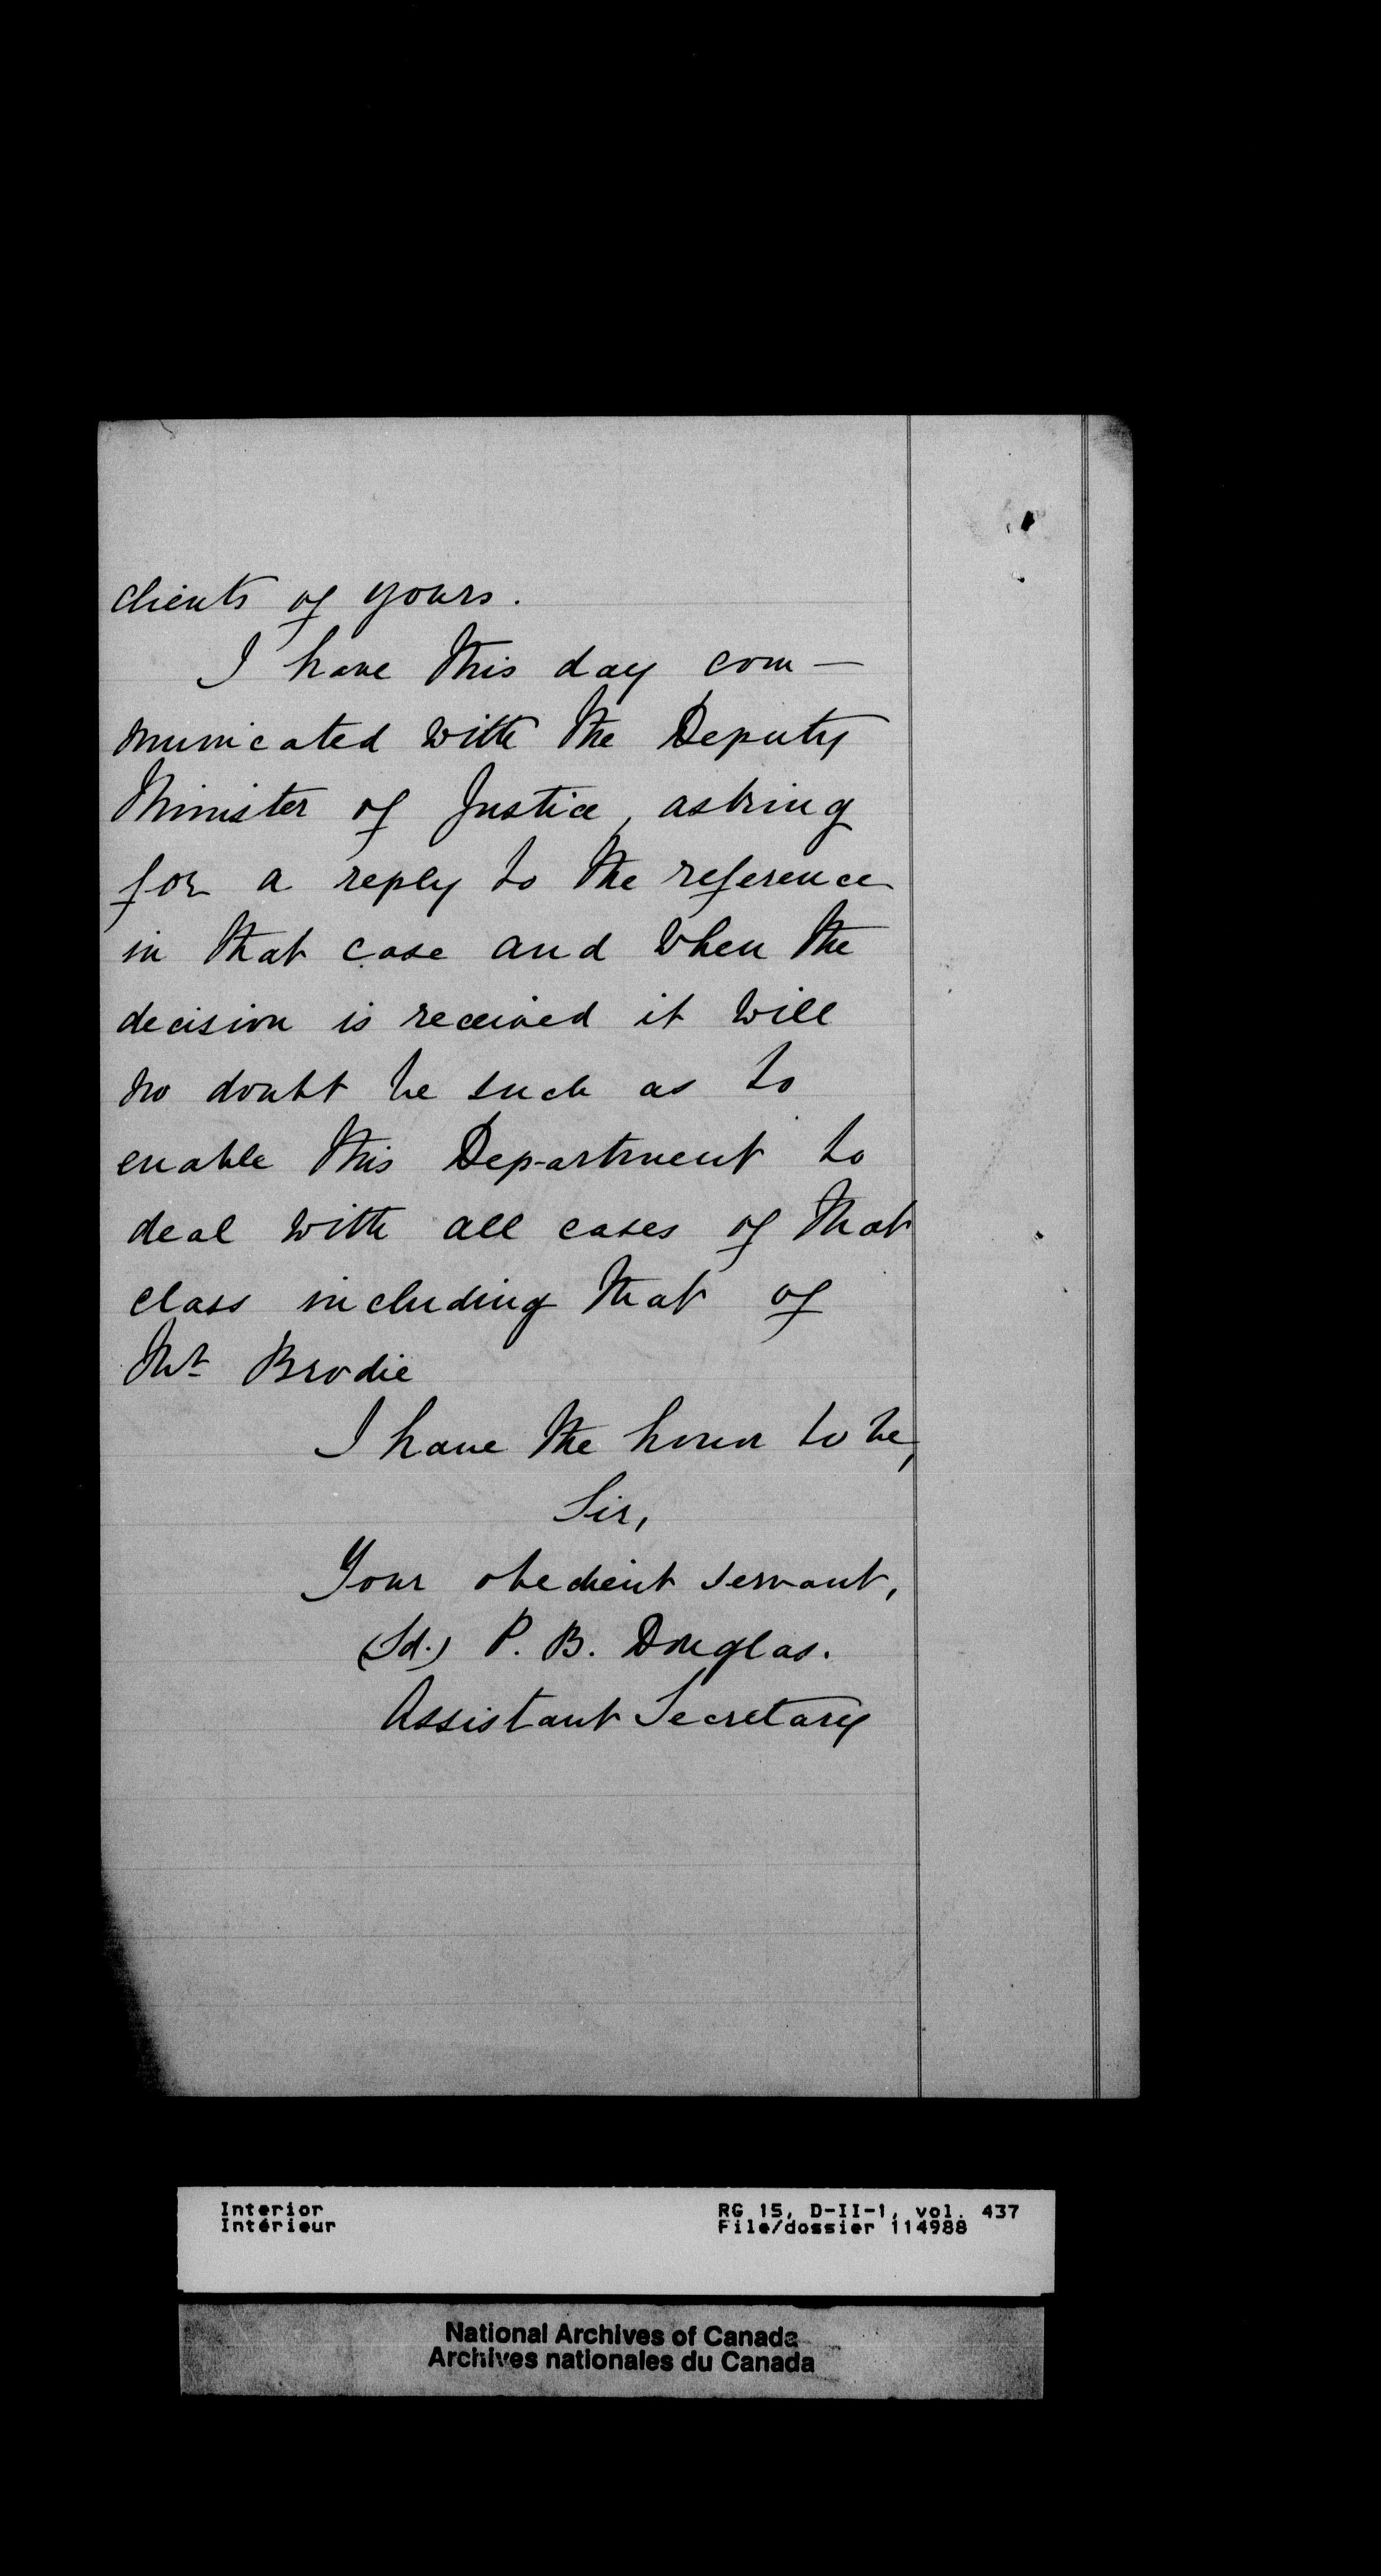 clients of yours.
I have this day com-
municated with the Deputy
Minister of Justice, asking
for a reply to the reference
in that case and when the
decision is received it will
no doubt be such as to
enable this Department to
deal with all cases of that
class including that of
Mr Brodie
I have the honor to be,
Sir,
Your obedient servant,
(Sd.) P. B. Douglas.
Assistant Secretary
Interior
Intérieur
RG 15, D-II-1, vol. 437
File/dossier 114988
National Archives of Canada
Archives nationales du Canada